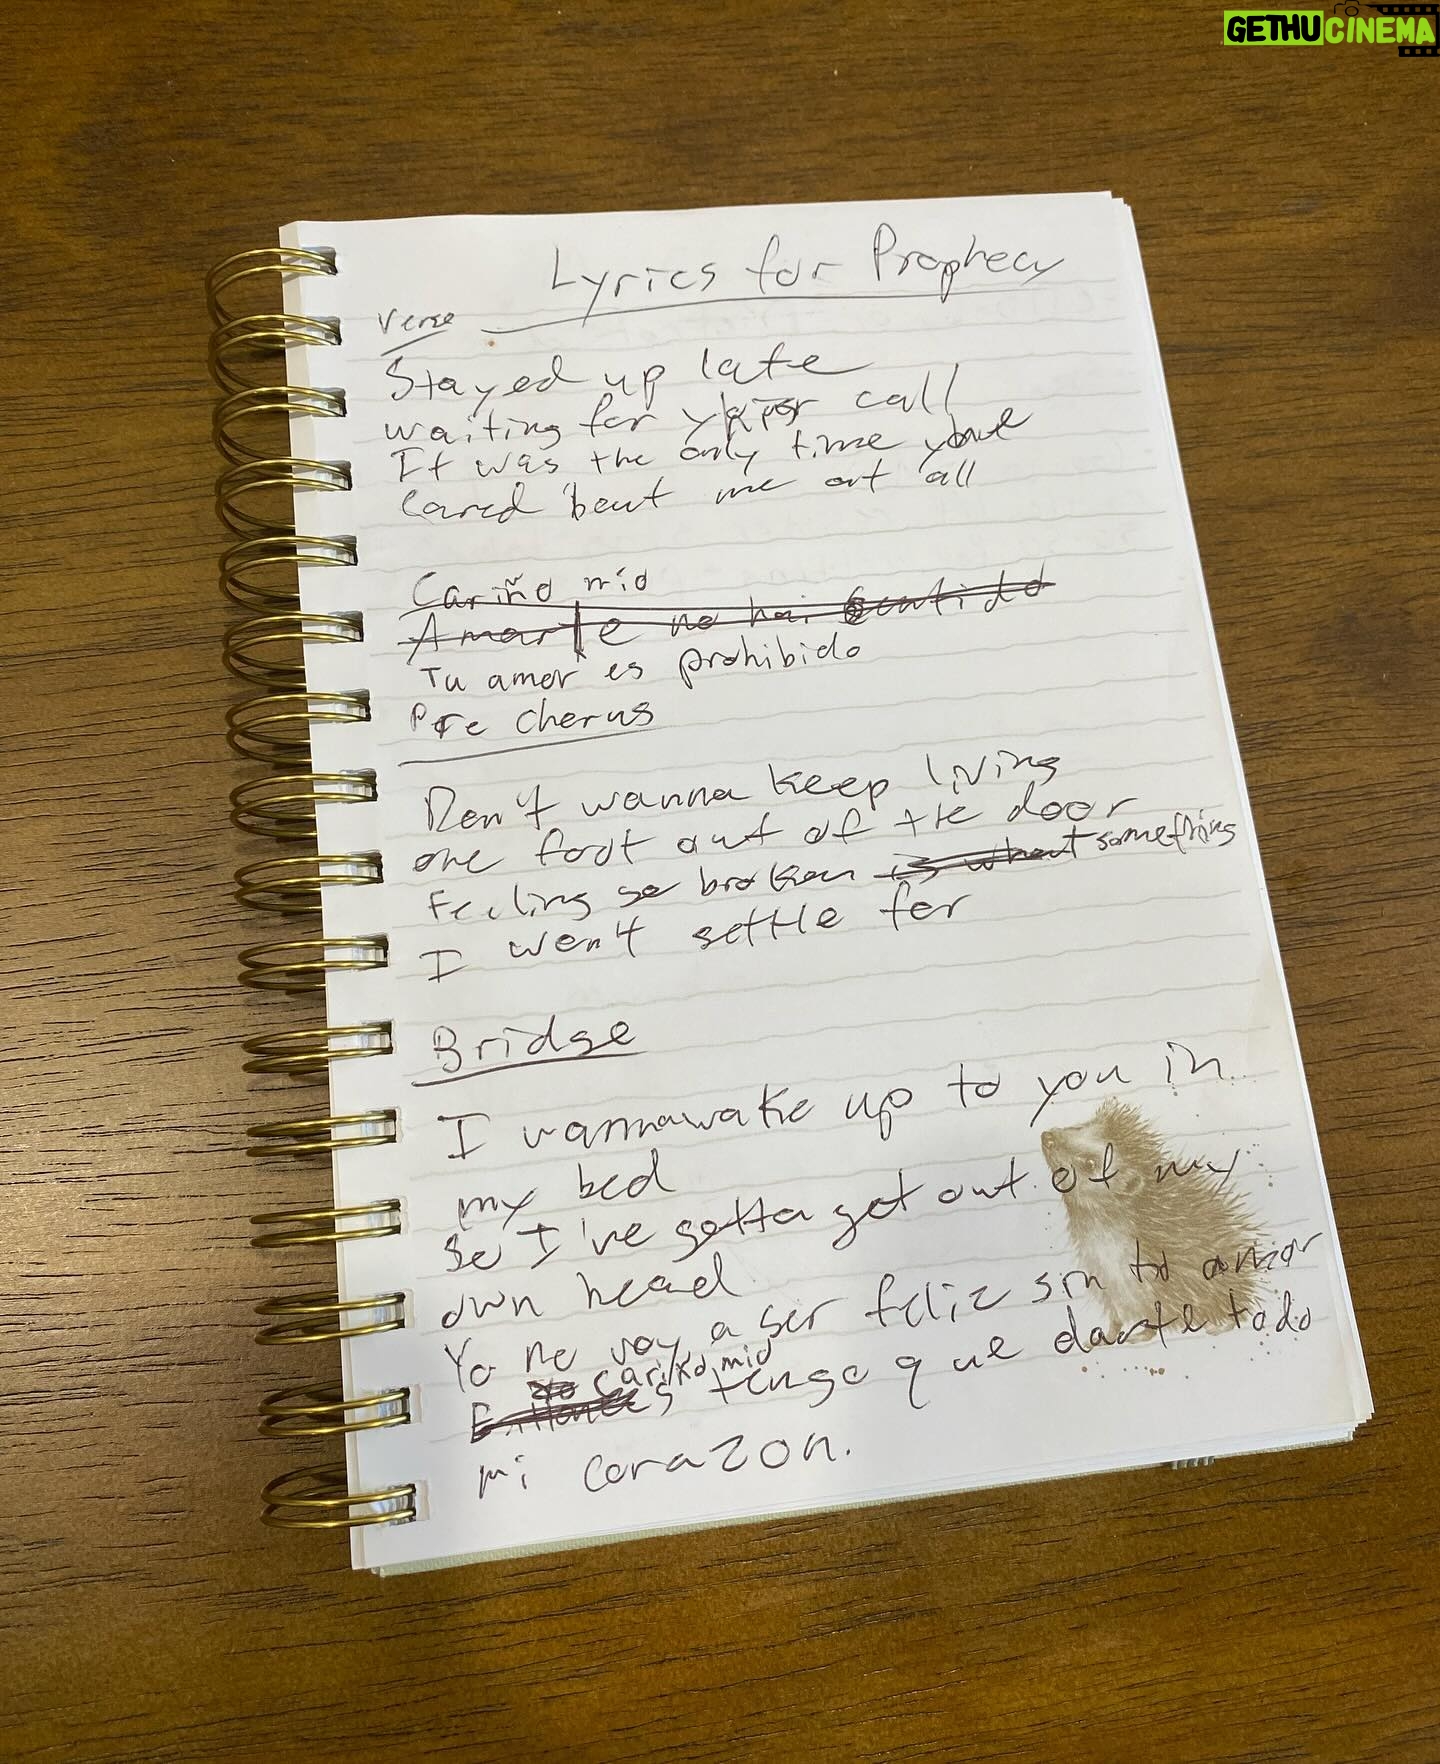 GETHUCINEMA
Lyrics for Prophecy
Verse
Stayed up late
waiting for your call
It was the only time you
cared 'bout me at all
Cariño mío
Amarte no hai sentido
Tu amor es prohibido
Pre chorus
Don't wanna keep living
one foot out of the door
Feeling so broken is what something
I won't settle for
Bridge
I wanna wake up to you in
my bed
So I've gotta get out of my
own head
Yo no voy a ser feliz sin tu amor
cariño mio
tengo que darte todo
mi corazon.